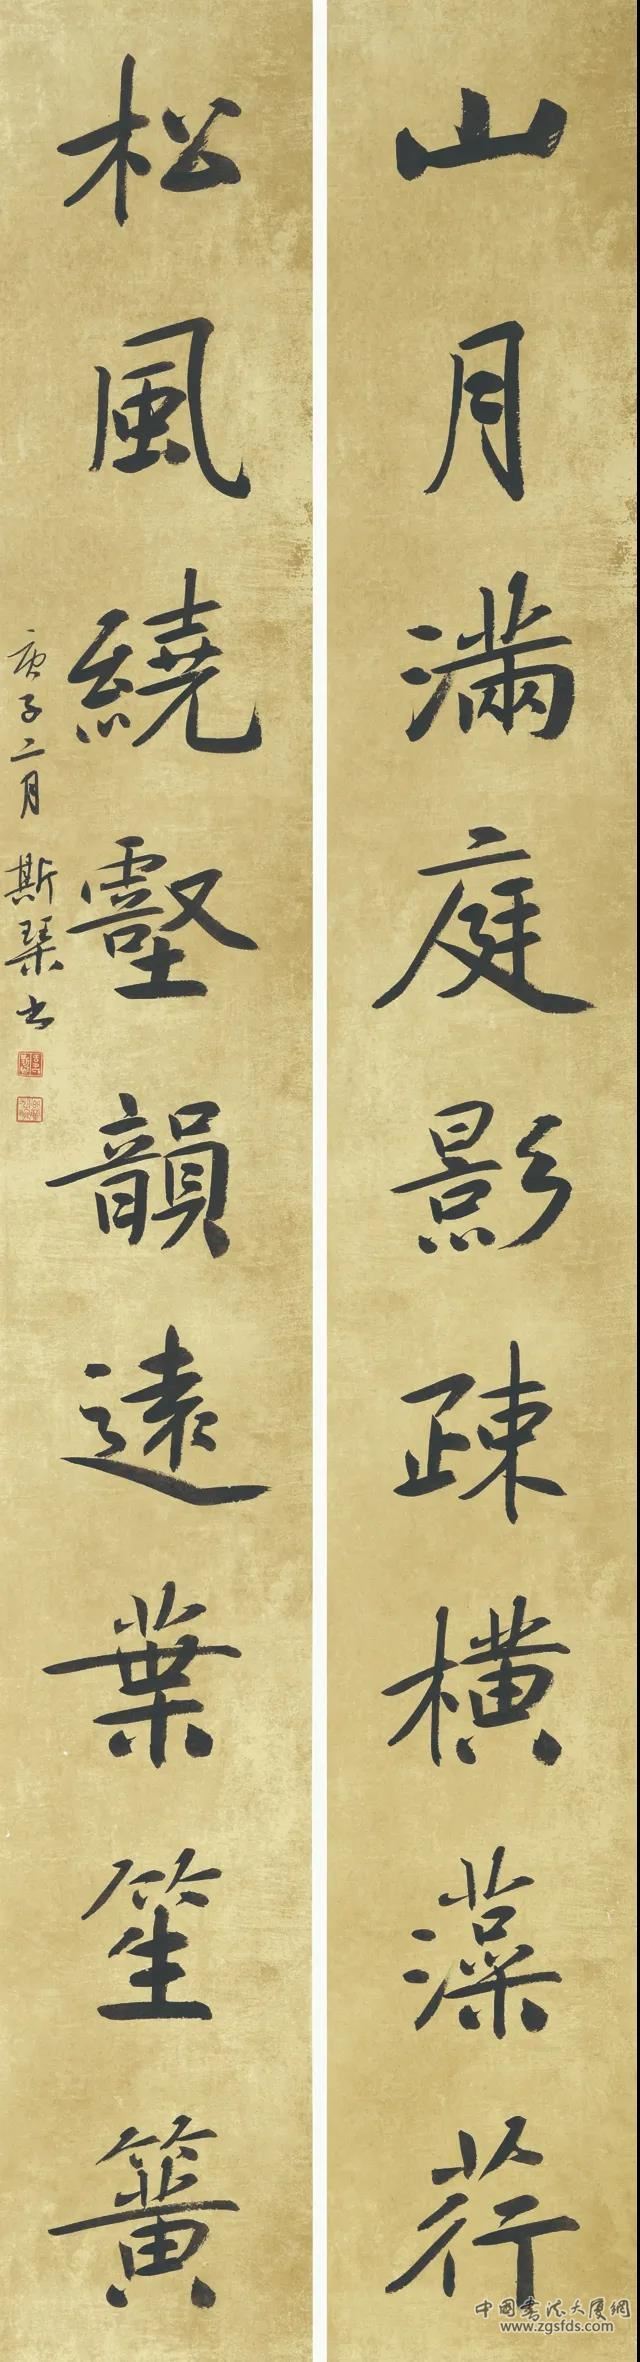 山月滿庭影疎橫藻荇
松風繞壑韻遠葉笙簧
庚子二月斯琹书
中國書法大廈網
www.zgsfds.com